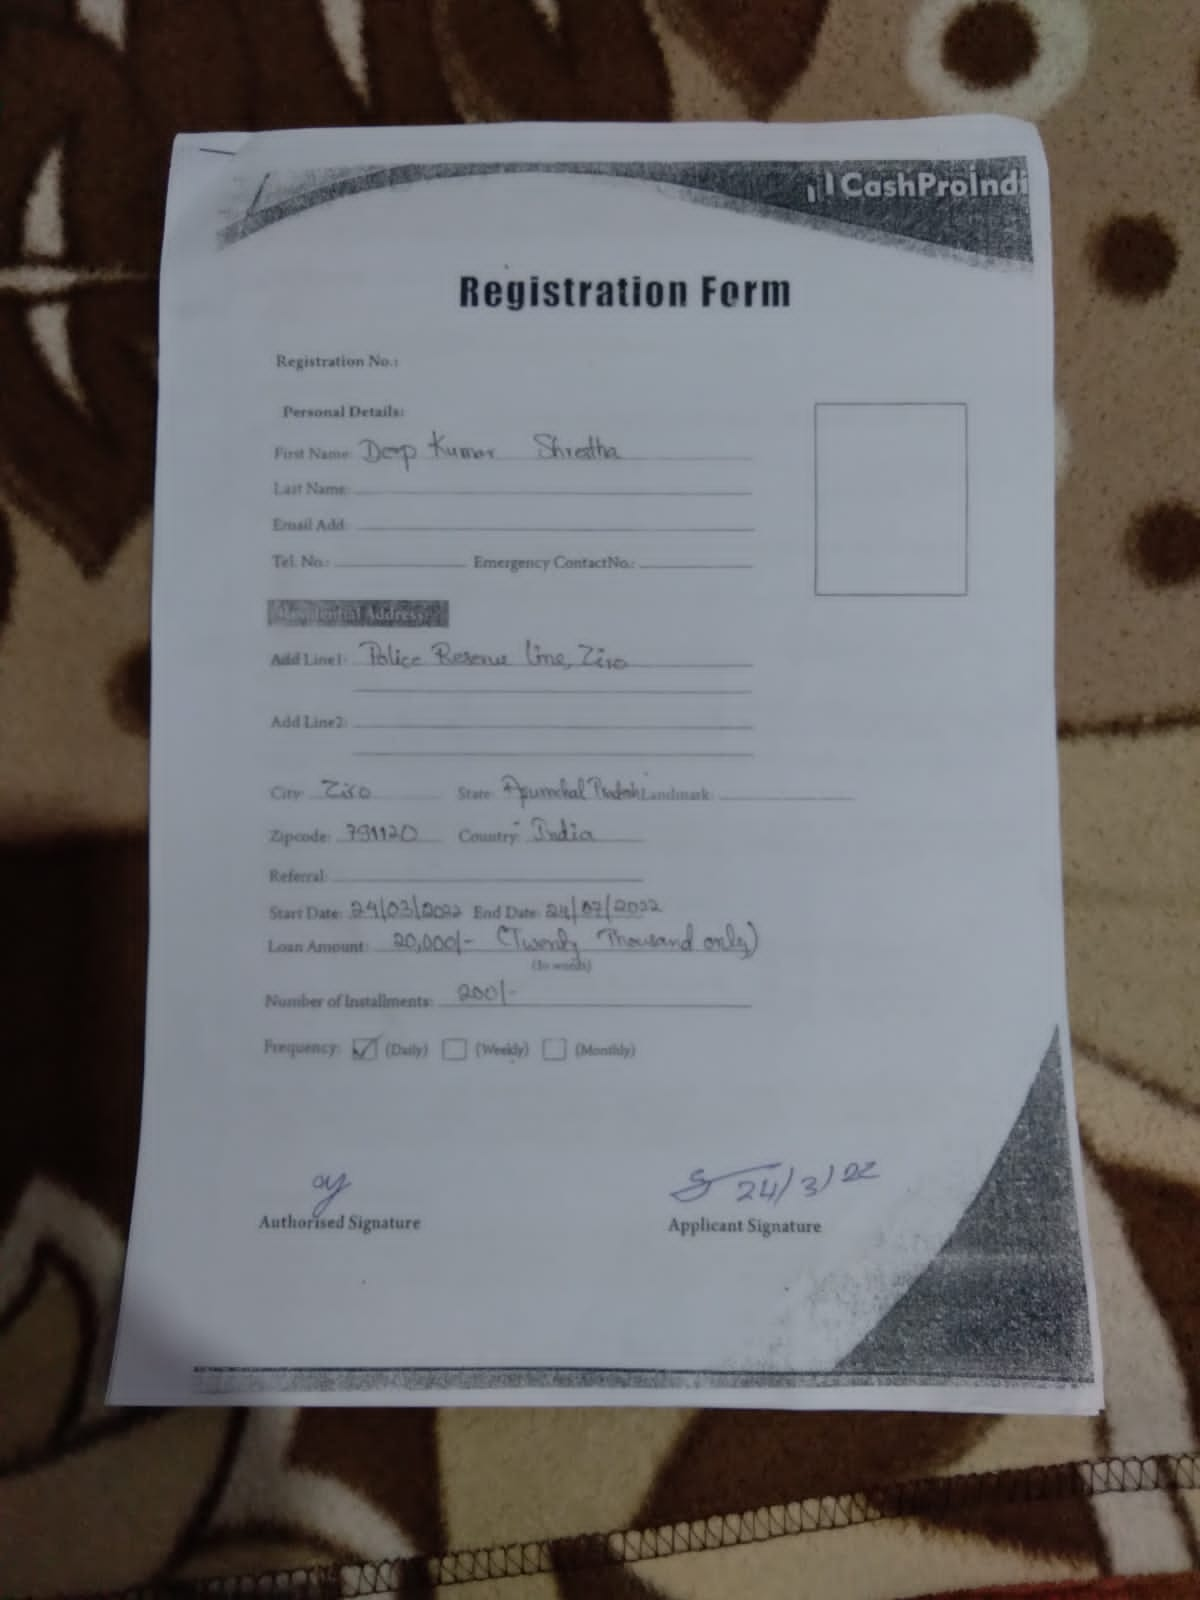 CashProIndi
Registration Form
Registration No.:
Personal Details:
First Name: Deep Kumar Shrestha
Last Name:
Email Add:
Tel. No.: Emergency ContactNo.:
Residential Address:
Add Line1: Police Reserve Line, Ziro
Add Line2:
City: Ziro State: Arunchal Pradesh Landmark:
Zipcode: 791120 Country: India
Referral:
Start Date: 24/03/2022 End Date: 24/07/2022
Loan Amount: 20,000/- (Twenty Thousand only)
(In words)
Number of Installments: 200/-
Frequency: (Daily) (Weekly) (Monthly)
24/3/22
Authorised Signature Applicant Signature